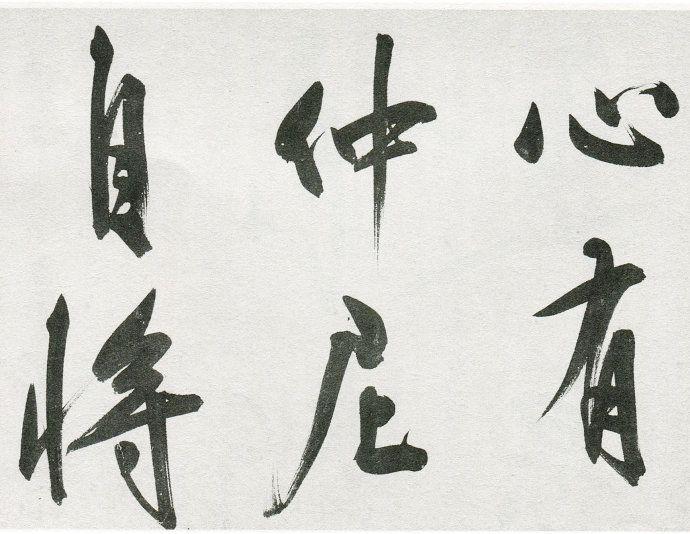 心有
仲尼
自将